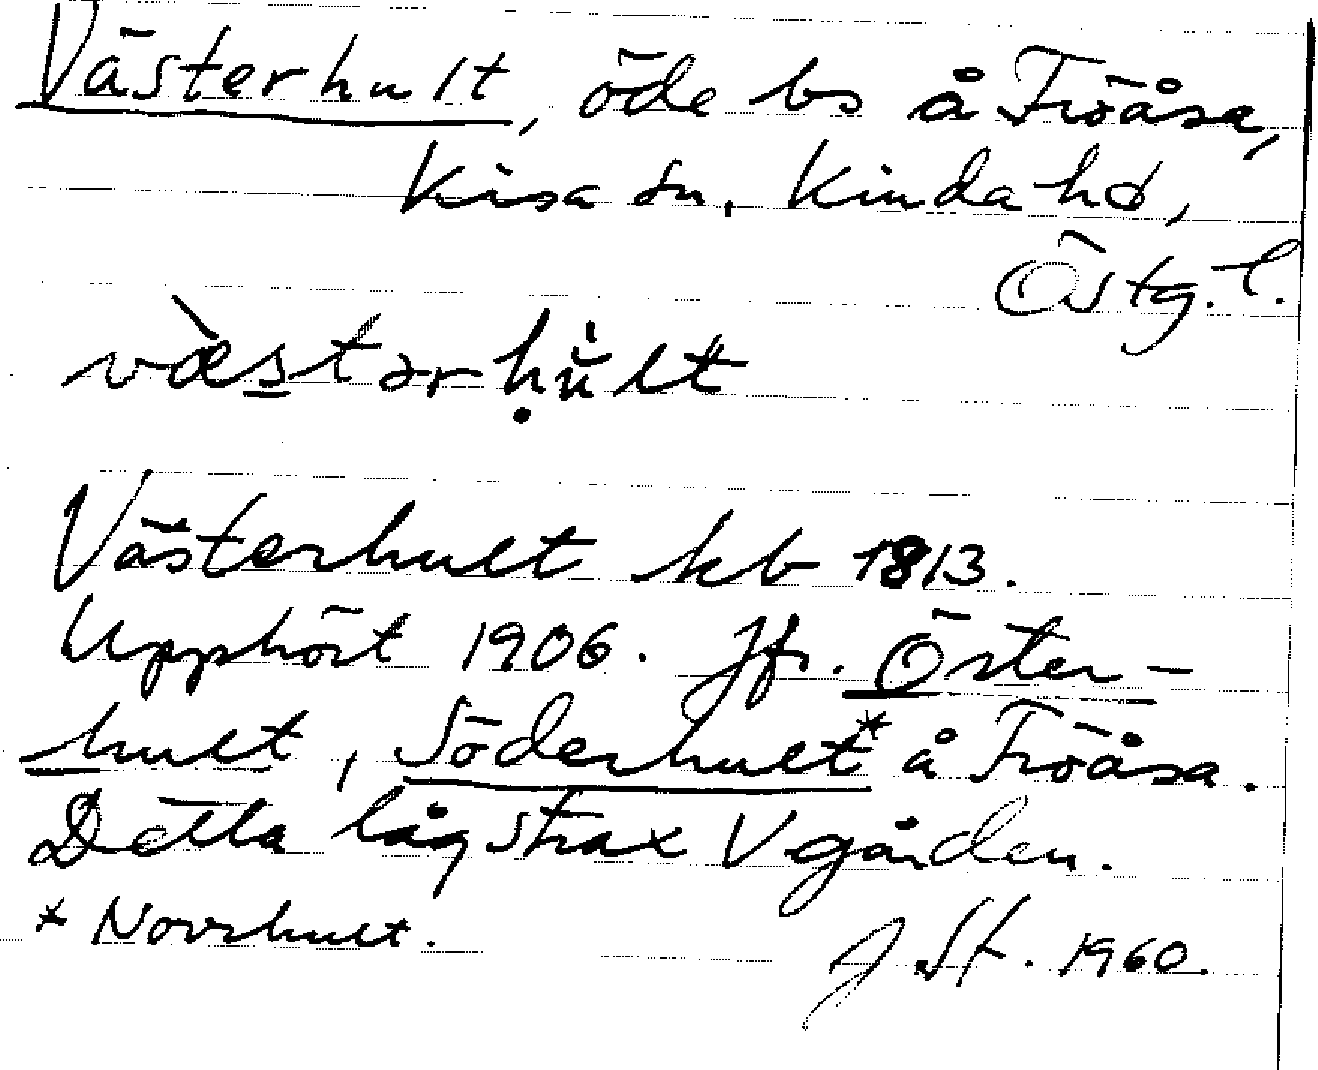 Västerhult, öde bs å Fröåsa,
Kisa sn, Kinda hd,
Östg. l.
Västerhult kb 1813.
Upphört 1906. Jfr. Öster-
hult, Söderhult* å Fröåsa.
Detta låg strax V gården.
* Norrhult.
J. St. 1960.